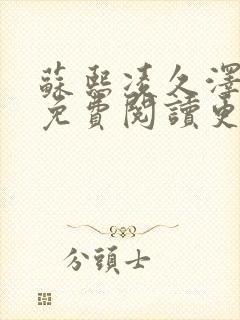 蘇熙凌久澤
免費閱讀更
分頭士